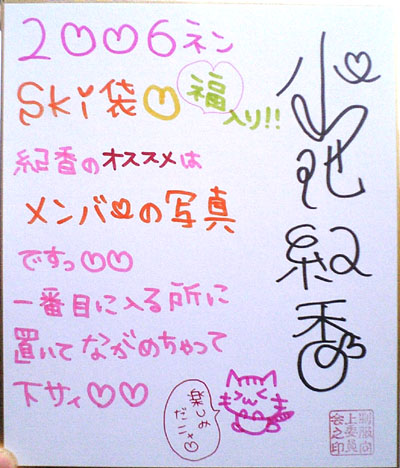 2♡♡6ネン
Ski袋♡福入り!!
紀香のオススメは
メンバ♡の写真
ですっ♡♡
一番目に入る所に
置いてながめちゃって
下サィ♡♡
楽しみ
だニャ♡
小池紀香
制服向
上委員
会之印